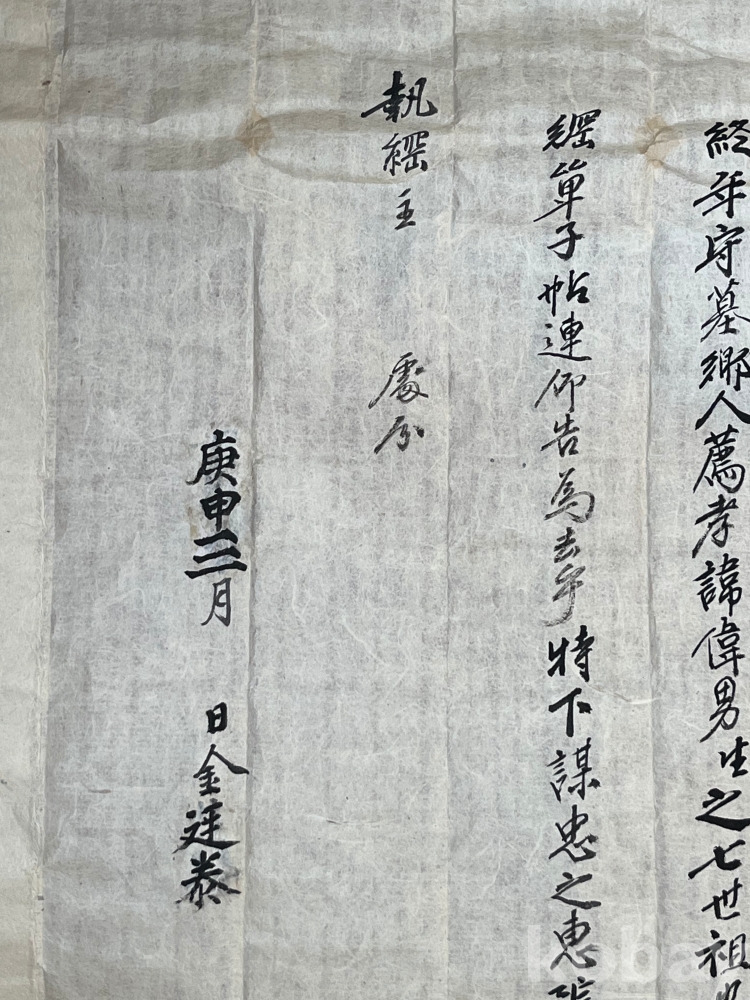 終年守墓鄉人薦孝諱偉男生之七世祖
綛單子帖連仰告為去乎特下謀忠之惠
執綛主 處分
庚申三月 日金廷泰
koba